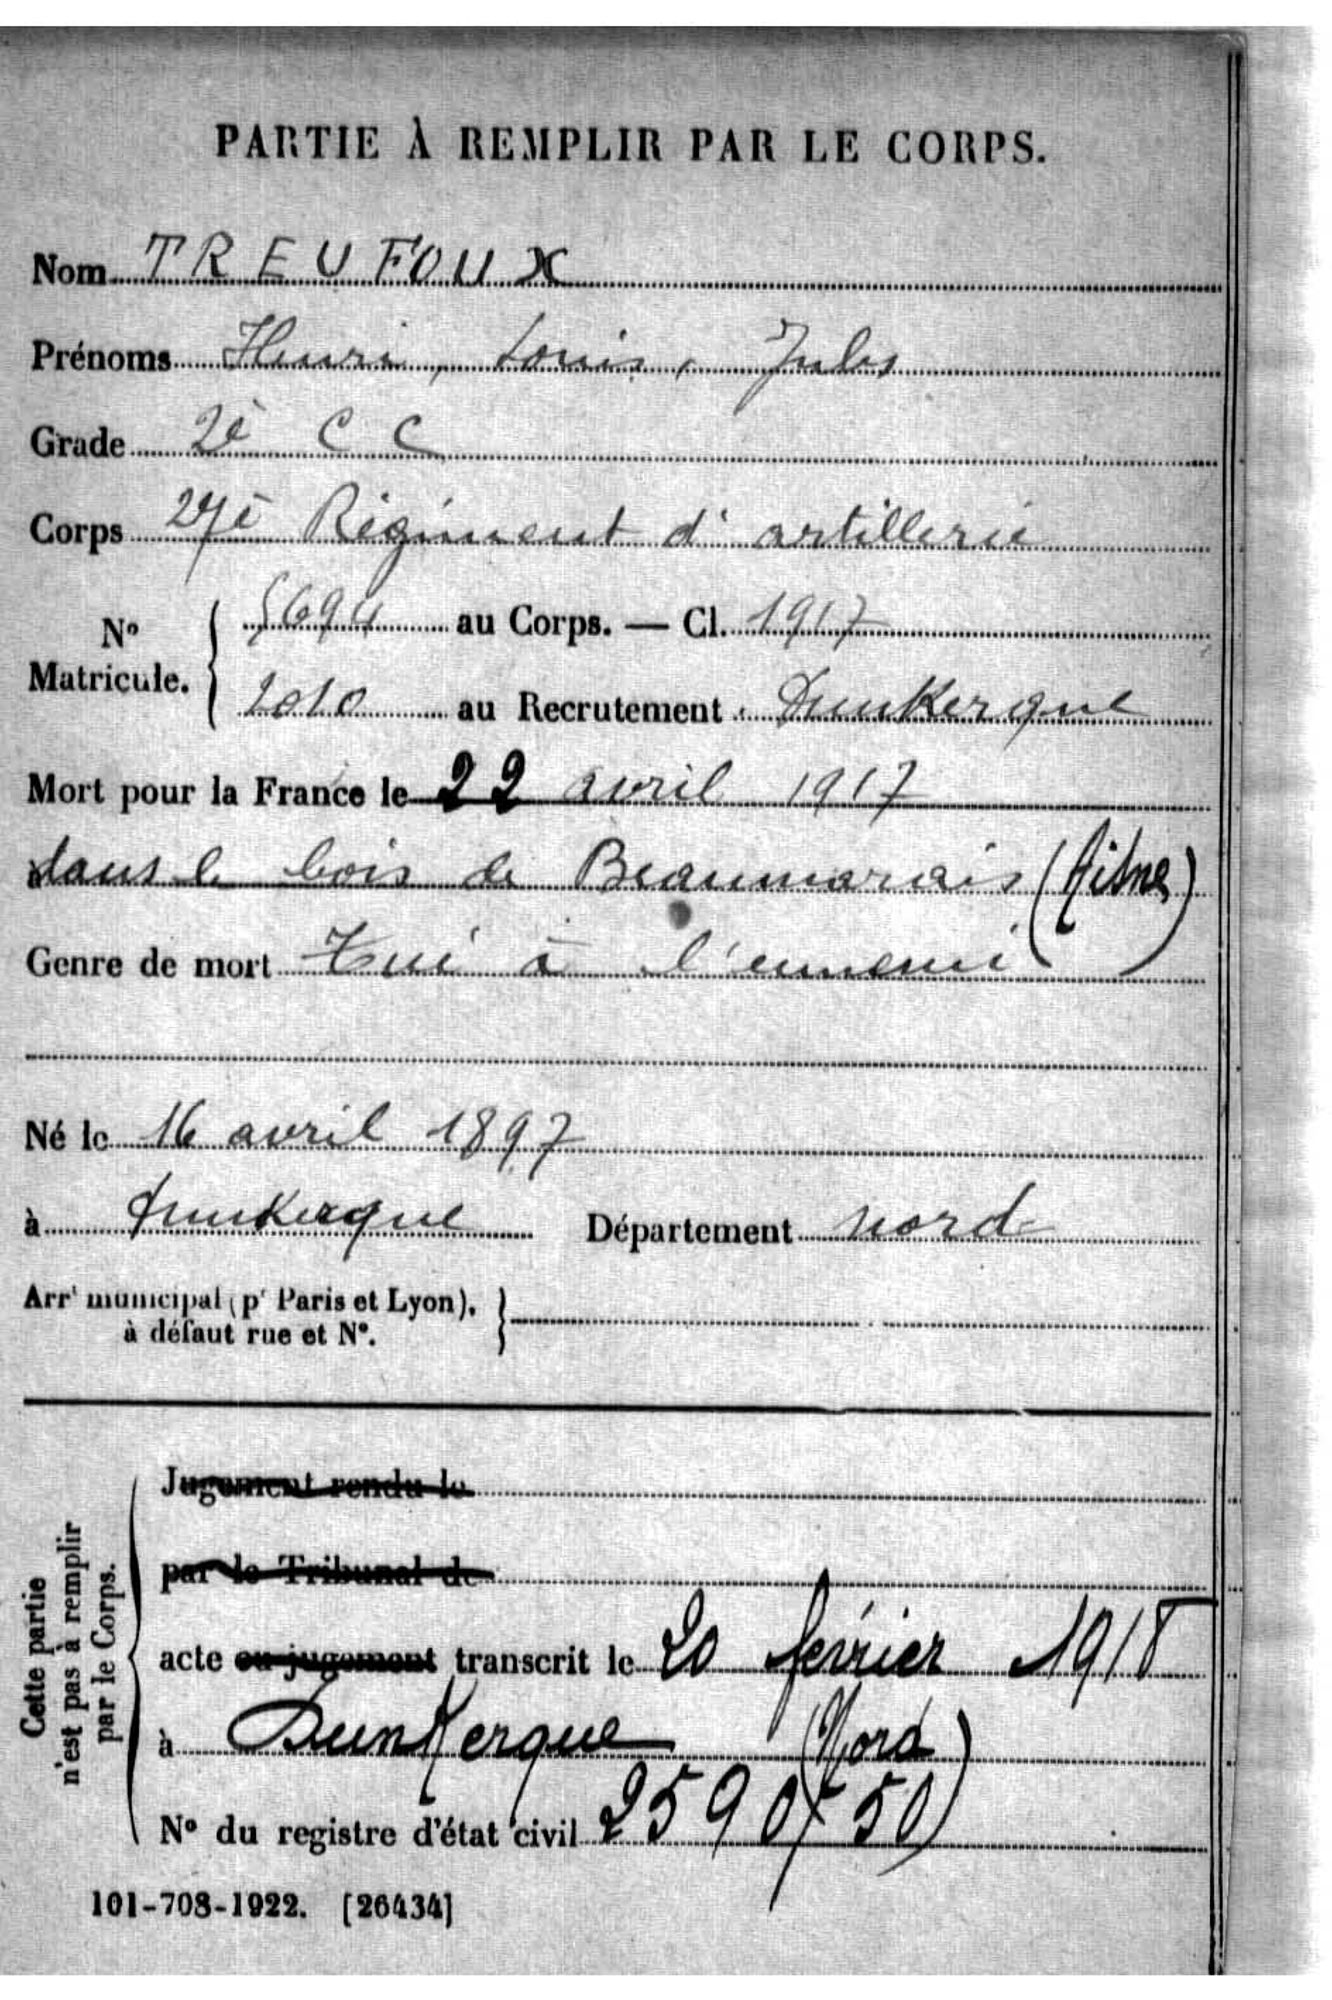 PARTIE À REMPLIR PAR LE CORPS.
Nom TREUFOUX
Prénoms Henri, Louis, Jules
Grade 2è C C
Corps 27è Régiment d'artillerie
N° Matricule. { 5694 au Corps. — Cl. 1917
1010 au Recrutement Dunkerque
Mort pour la France le 22 avril 1917
dans le bois de Beaumarais (Aisne)
Genre de mort Tué à l'ennemi
Né le 16 avril 1897
à Dunkerque Département Nord
Arr' municipal (p' Paris et Lyon), }
à défaut rue et N°.
Cette partie
n'est pas à remplir
par le Corps.
Jugement rendu le
par le Tribunal de
acte ou jugement transcrit le 20 février 1918
à Dunkerque (Nord)
N° du registre d'état civil 2590/50
101-708-1922. [26434]